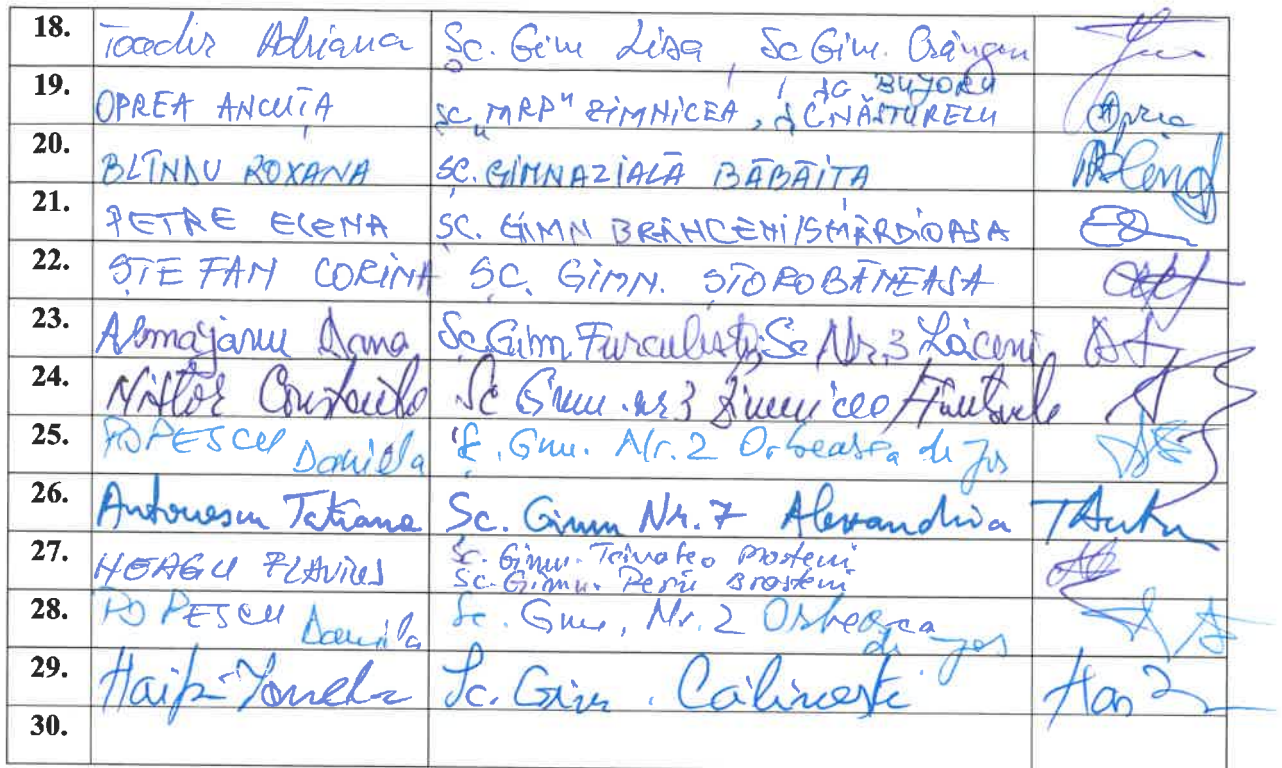 18. Toader Adriana Sc. Gim Lisa, Sc Gim. Crângeni
19. OPREA ANCUȚA Sc. "MRP" ZIMNICEA, SC NĂSTURELU, SG BUJORU Oprea
20. BLÎNDU ROXANA SC. GIMNAZIALĂ BĂBĂIȚA
21. PETRE ELENA SC. GIMN BRÂNCENI/SMÂRDIOASA
22. ȘTEFAN CORINA SC. GIMN. ȘTOROBĂNEASA
23. Almăjanu Dana Sc Gim. Furculești; Sc Nr. 3 Lăceni
24. Nistor Sc Gim. nr 3 Zimnicea
25. POPESCU Daniela Sc. Gim. Nr. 2 Orbeasca de Jos
26. Antonescu Tatiana Sc. Gimn Nr. 7 Alexandria
27. NEAGU FLAVIUS Sc. Gimn. Trivalea Moșteni
Sc. Gimn. Peretu Broșteni
28. POPESCU Daniela Sc. Gim, Nr. 2 Orbeasca de Jos
29. Sc. Gim. Călinești
30.